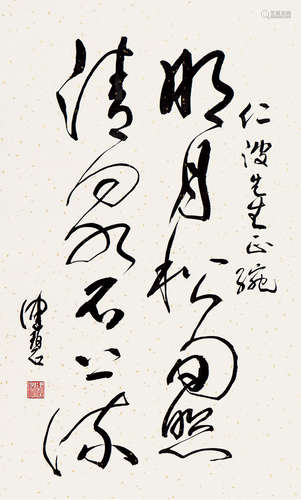 仁波先生正腕
明月松間照
清泉石上流